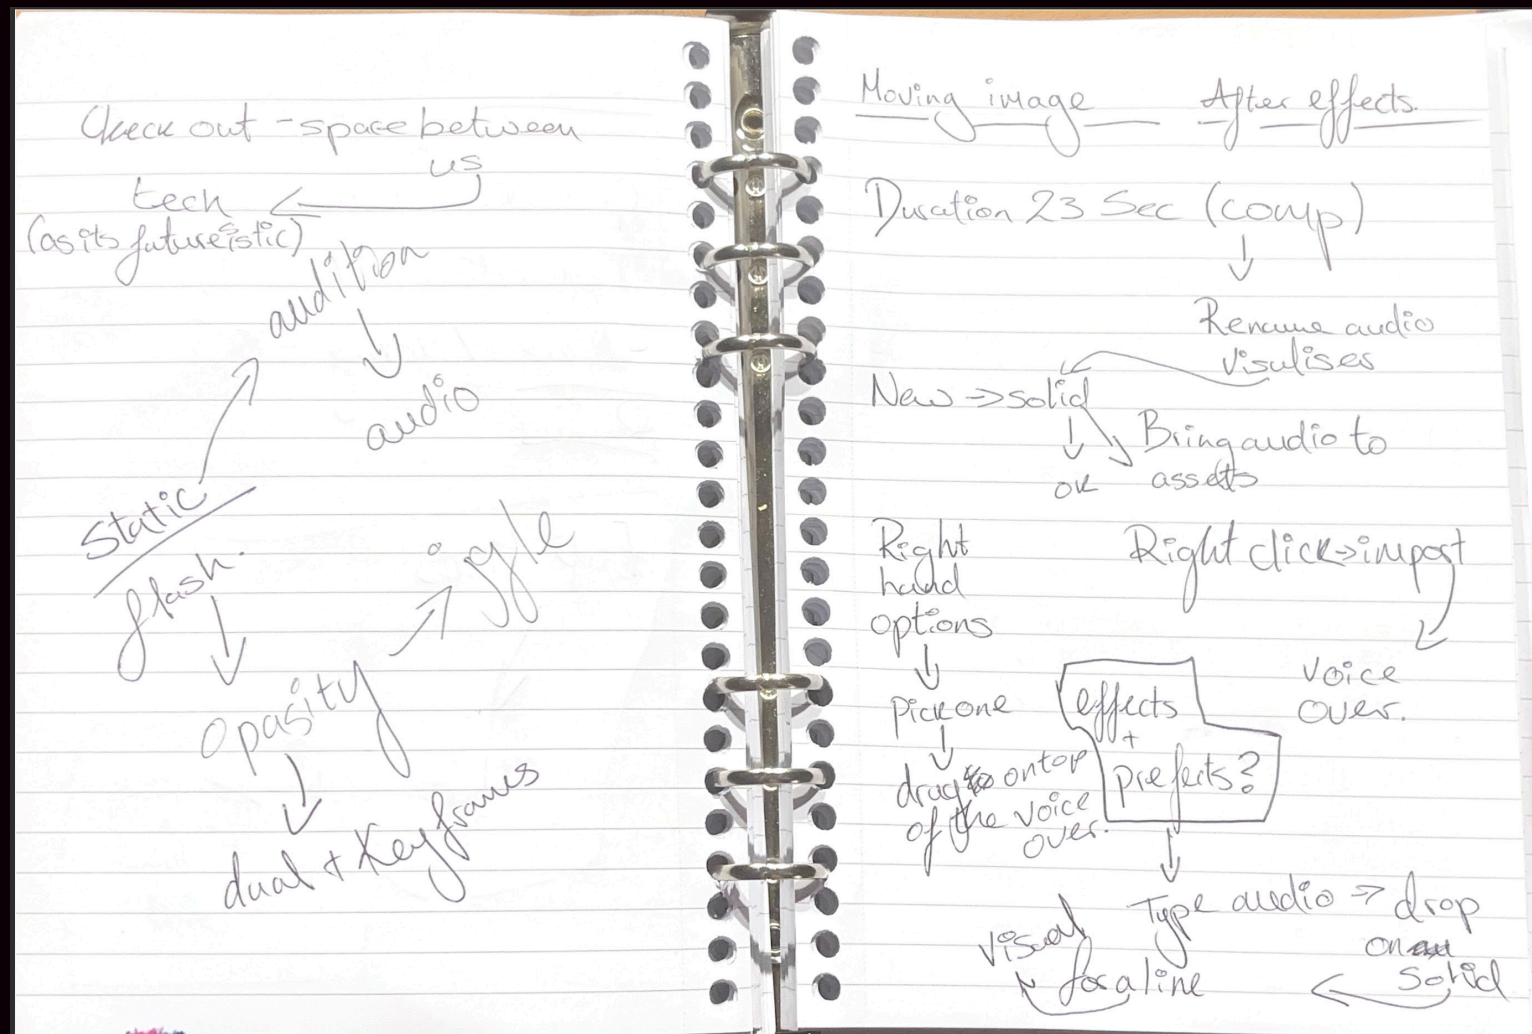 Check out - space between
us
tech
(as its futureistic)
audition
↓
audio
static
flash.
↓
opasity → iggle
↓
dual + Keyframes
Moving image After effects.
Duration 23 Sec (comp)
↓
Rename audio
visulises
New → solid
↓
ok
Bring audio to
assets
Right
hand
options
↓
pick one
↓
drag on top
of the voice
over.
Right click → import
voice
over.
effects
+
prefects?
↓
Type audio → drop
on
solid
for a line
visual